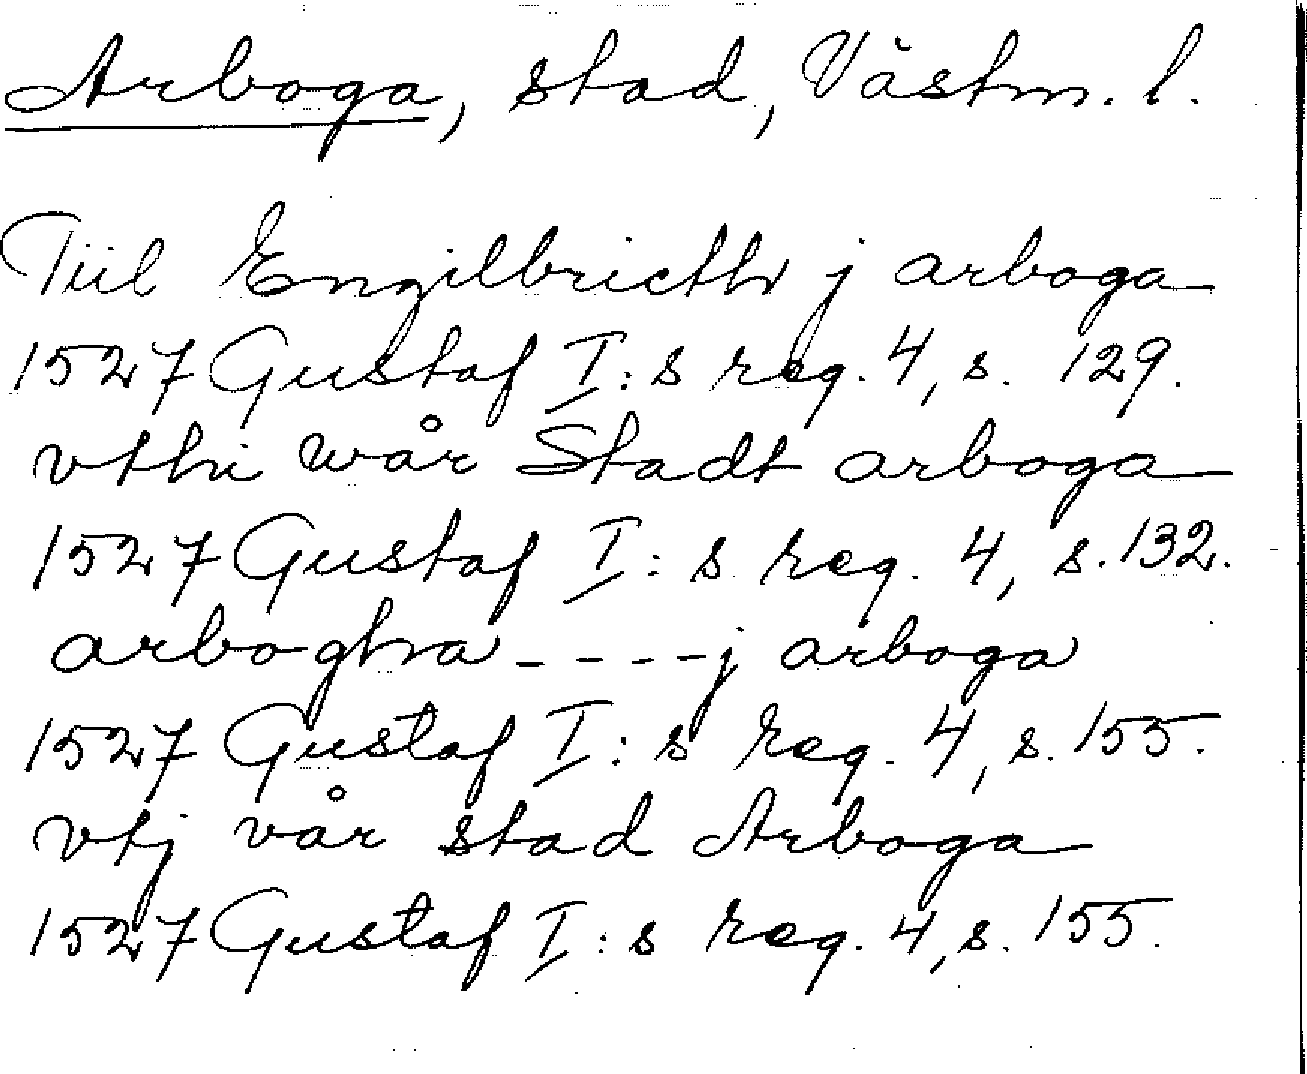 Arboga, stad, Västm. l.
Tiil Engilbricth j arboga
1527 Gustaf I:s reg. 4, s. 129.
vthi wår Stadt arboga
1527 Gustaf I:s reg. 4, s. 132.
arbogha - - - - j arboga
1527 Gustaf I:s reg. 4, s. 155.
vtj vår stad Arboga
1527 Gustaf I:s reg. 4, s. 155.